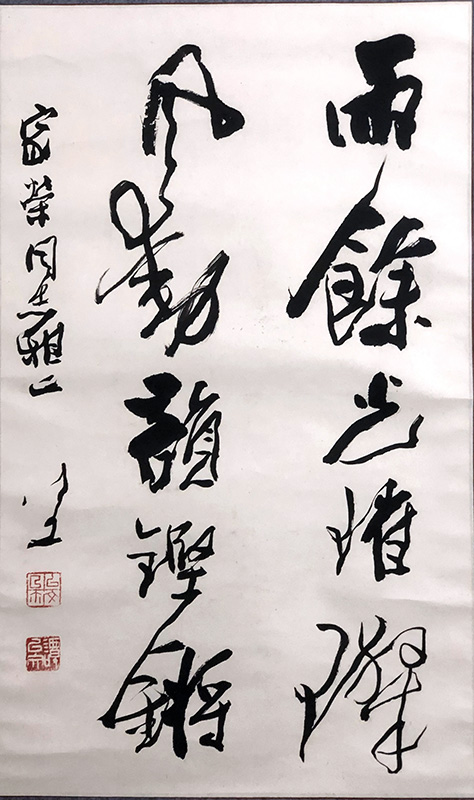 雨餘光璀璨
風動韻鏗鏘
家榮同志雅正